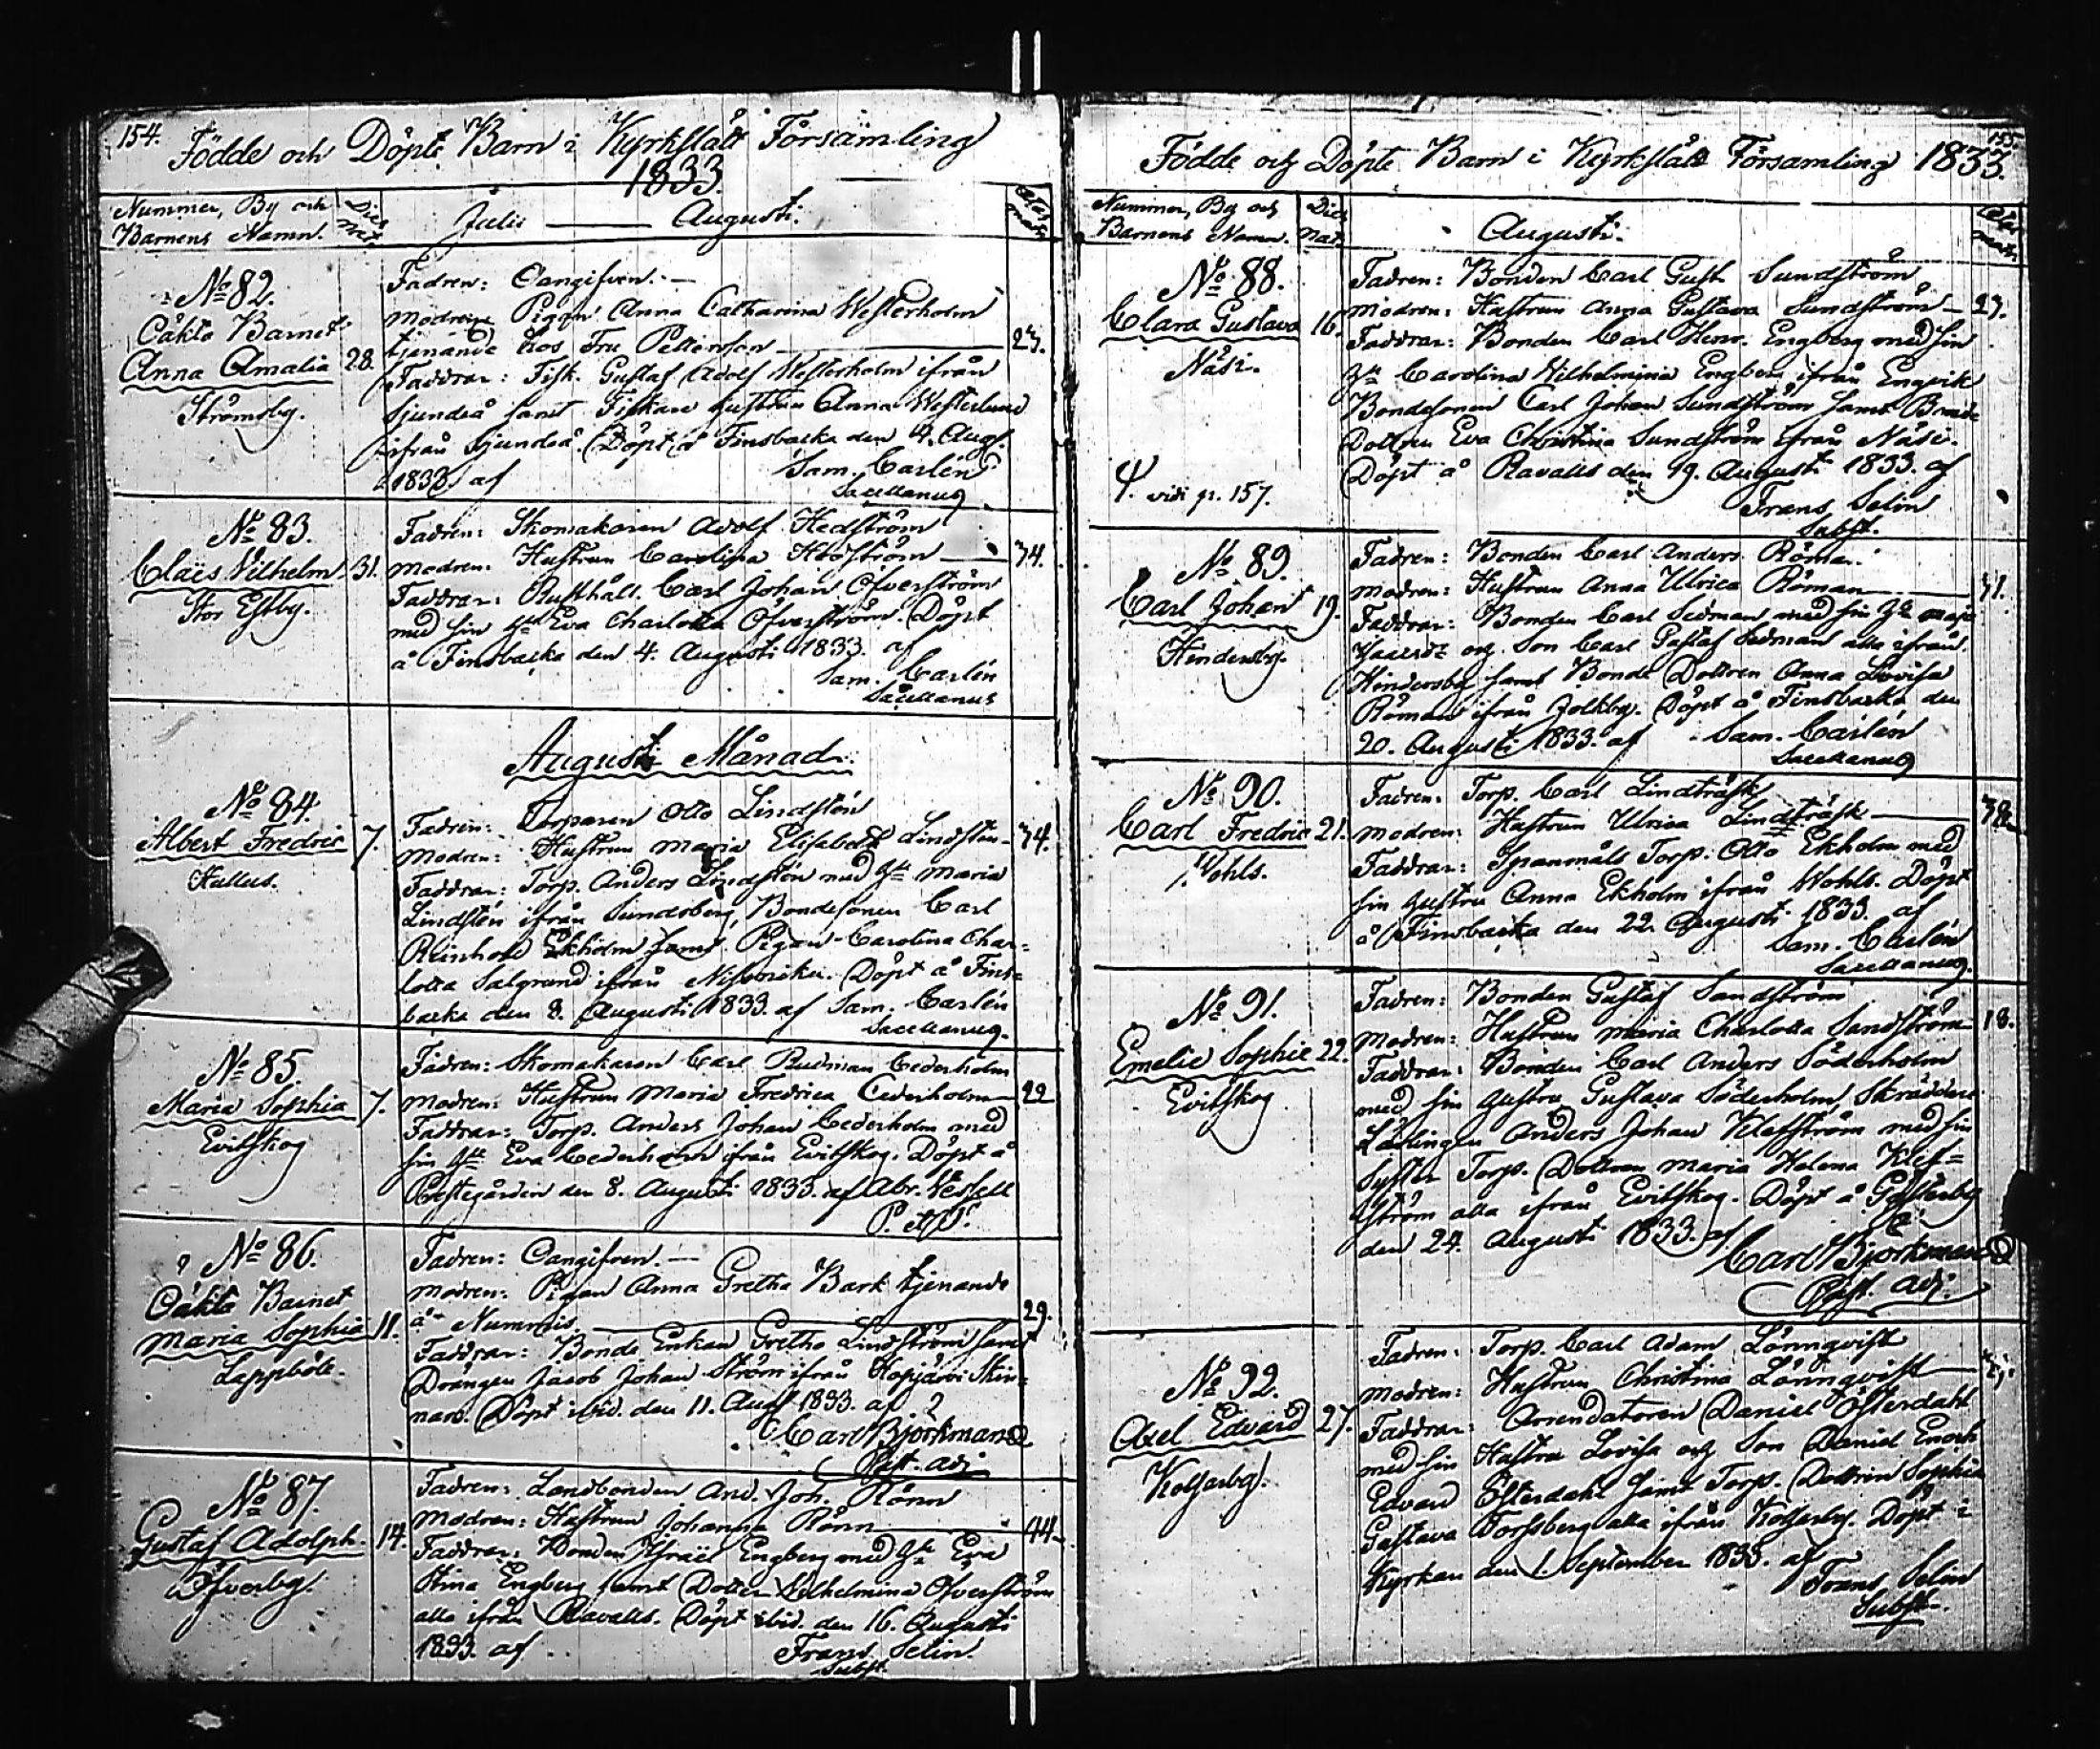 154.
Födde och Döpte Barn i Kyrkslätt Församling
1833.
Nummer, By och
Barnens Namn.
Dies
Nat.
Julii — Augusti.
Ætas
matr.
No 82.
Oäkta Barnet
Anna Amalia
Strömsby.
28.
Fadren: Oangifven. —
Modren: Pigan Anna Catharina Westerholm
tjenande hos Fru Pettersson — 23.
Faddrar: Fisk. Gustaf Adolf Westerholm ifrån
Sjundeå samt Fiskare hustrun Anna Westerlund
ifrån Sjundeå. Döpt å Finsbacka den 4. Aug.
1833 af Sam. Carlén
Sacellanus
No 83.
Claës Vilhelm
Stor Esby.
31.
Fadren: Skomakaren Adolf Hedström
Modren: Hustrun Carolina Hedström — 34.
Faddrar: Rusthåll. Carl Johan Öfverström
med sin Hu Eva Charlotta Öfverström. Döpt
å Finsbacka den 4. Augusti 1833. af
Sam. Carlén
Sacellanus
Augusti Månad.
No 84.
Albert Fredric
Kullus.
7.
Fadren: Torparen Otto Lindstén
Modren: Hustrun Maria Elisabeth Lindstén — 34.
Faddrar: Torp. Anders Lindstén med Hu Maria
Lindstén ifrån Sundsberg, Bondesonen Carl
Reinhold Ekholm samt Pigan Carolina Char-
lotta Salgrund ifrån. Döpt å Fins-
backa den 8. Augusti 1833. af Sam. Carlén
Sacellanus.
No 85.
Maria Sophia
Evitskog
7.
Fadren: Skomakaren Carl Cederholm
Modren: Hustrun Maria Fredrica Cederholm — 22
Faddrar: Torp. Anders Johan Cederholm med
sin Hu Eva Cederholm ifrån Evitskog. Döpt å
Prestegården den 8. Augusti 1833. af Abr.
No 86.
Oäkta Barnet
Maria Sophia
Lappböle.
11.
Fadren: Oangifven. —
Modren: Pigan Anna Gretha Bark tjenande
å Nummis. — 29.
Faddrar: Bonde Enkan Gretha Lindström samt
Drängen Jacob Johan Ström ifrån Hapjärvi Skin-
nars. Döpt ibid. den 11. Aug. 1833. af
Carl Björkman
Past. adj.
No 87.
Gustaf Adolph.
Öfverby.
14.
Fadren: Landbonden And. Joh. Rönn
Modren: Hustrun Johanna Rönn — 44.
Faddrar: Bonden Israël Engberg med Hu Eva
Stina Engberg samt Dotter Wilhelmina Öfverström
alla ifrån Ravalls. Döpt ibid. den 16. Augusti
1833. af Frans Selin.
Subst.
155.
Födde och Döpte Barn i Kyrkslätt Församling 1833.
Nummer, By och
Barnens Namn.
Dies
Nat.
Augusti.
Ætas
matr.
No 88.
Clara Gustava
Näsi.
16.
vidi p. 157.
Fadren: Bonden Carl Gust. Sundström
Modren: Hustrun Anna Gustava Sundström — 27.
Faddrar: Bonden Carl Henr. Engberg med sin
Hu Carolina Wilhelmina Engberg ifrån Engvik
Bondesonen Carl Johan Sundström samt Bonde
Dottren Eva Christina Sundström ifrån Näsi.
Döpt å Ravalls den 19. Augusti 1833. af
Frans Selin
Subst.
No 89.
Carl Johan
Hindersby.
19.
Fadren: Bonden Carl Anders Röman.
Modren: Hustrun Anna Ulrica Röman — 31.
Faddrar: Bonden Carl Sedman med sin Hu Maja
och Son Carl Gustaf Sedman alla ifrån
Hindersby samt Bonde Dottren Anna Lovisa
Röman ifrån Jolkby. Döpt å Finsbacka den
20. Augusti 1833. af Sam. Carlén
Sacellanus
No 90.
Carl Fredric
Wohls.
21.
Fadren: Torp. Carl Lindträsk
Modren: Hustrun Ulrica Lindträsk — 38
Faddrar: Spanmåls Torp. Otto Ekholm med
sin Hustru Anna Ekholm ifrån Wohls. Döpt
å Finsbacka den 22. Augusti 1833. af
Sam. Carlén
Sacellanus.
No 91.
Emelie Sophie
Evitskog
22.
Fadren: Bonden Gustaf Sandström
Modren: Hustrun Maria Charlotta Sandström — 18.
Faddrar: Bonden Carl Anders Söderholm
med sin Hustru Gustava Söderholm, Skräddare
Lärlingen Anders Johan Klefström med sin
Syster Torp. Dottren Maria Helena Klef-
ström alla ifrån Evitskog. Döpt å Gesterby
den 24. Augusti 1833. af
Carl Björkman
Past. adj.
No 92.
Axel Edvard
Kolsarby.
27.
Fadren: Torp. Carl Adam Lönnqvist
Modren: Hustrun Christina Lönnqvist —
Faddrar: Arrendatoren Daniel Österdahl
med sin Hustru Lovisa och Son Daniel Enoch
Edvard Österdahl samt Torp. Dottren Sophia
Gustava Forssberg alla ifrån Kolsarby. Döpt i
Kyrkan den 1 September 1833. af
Frans Selin
Subst.